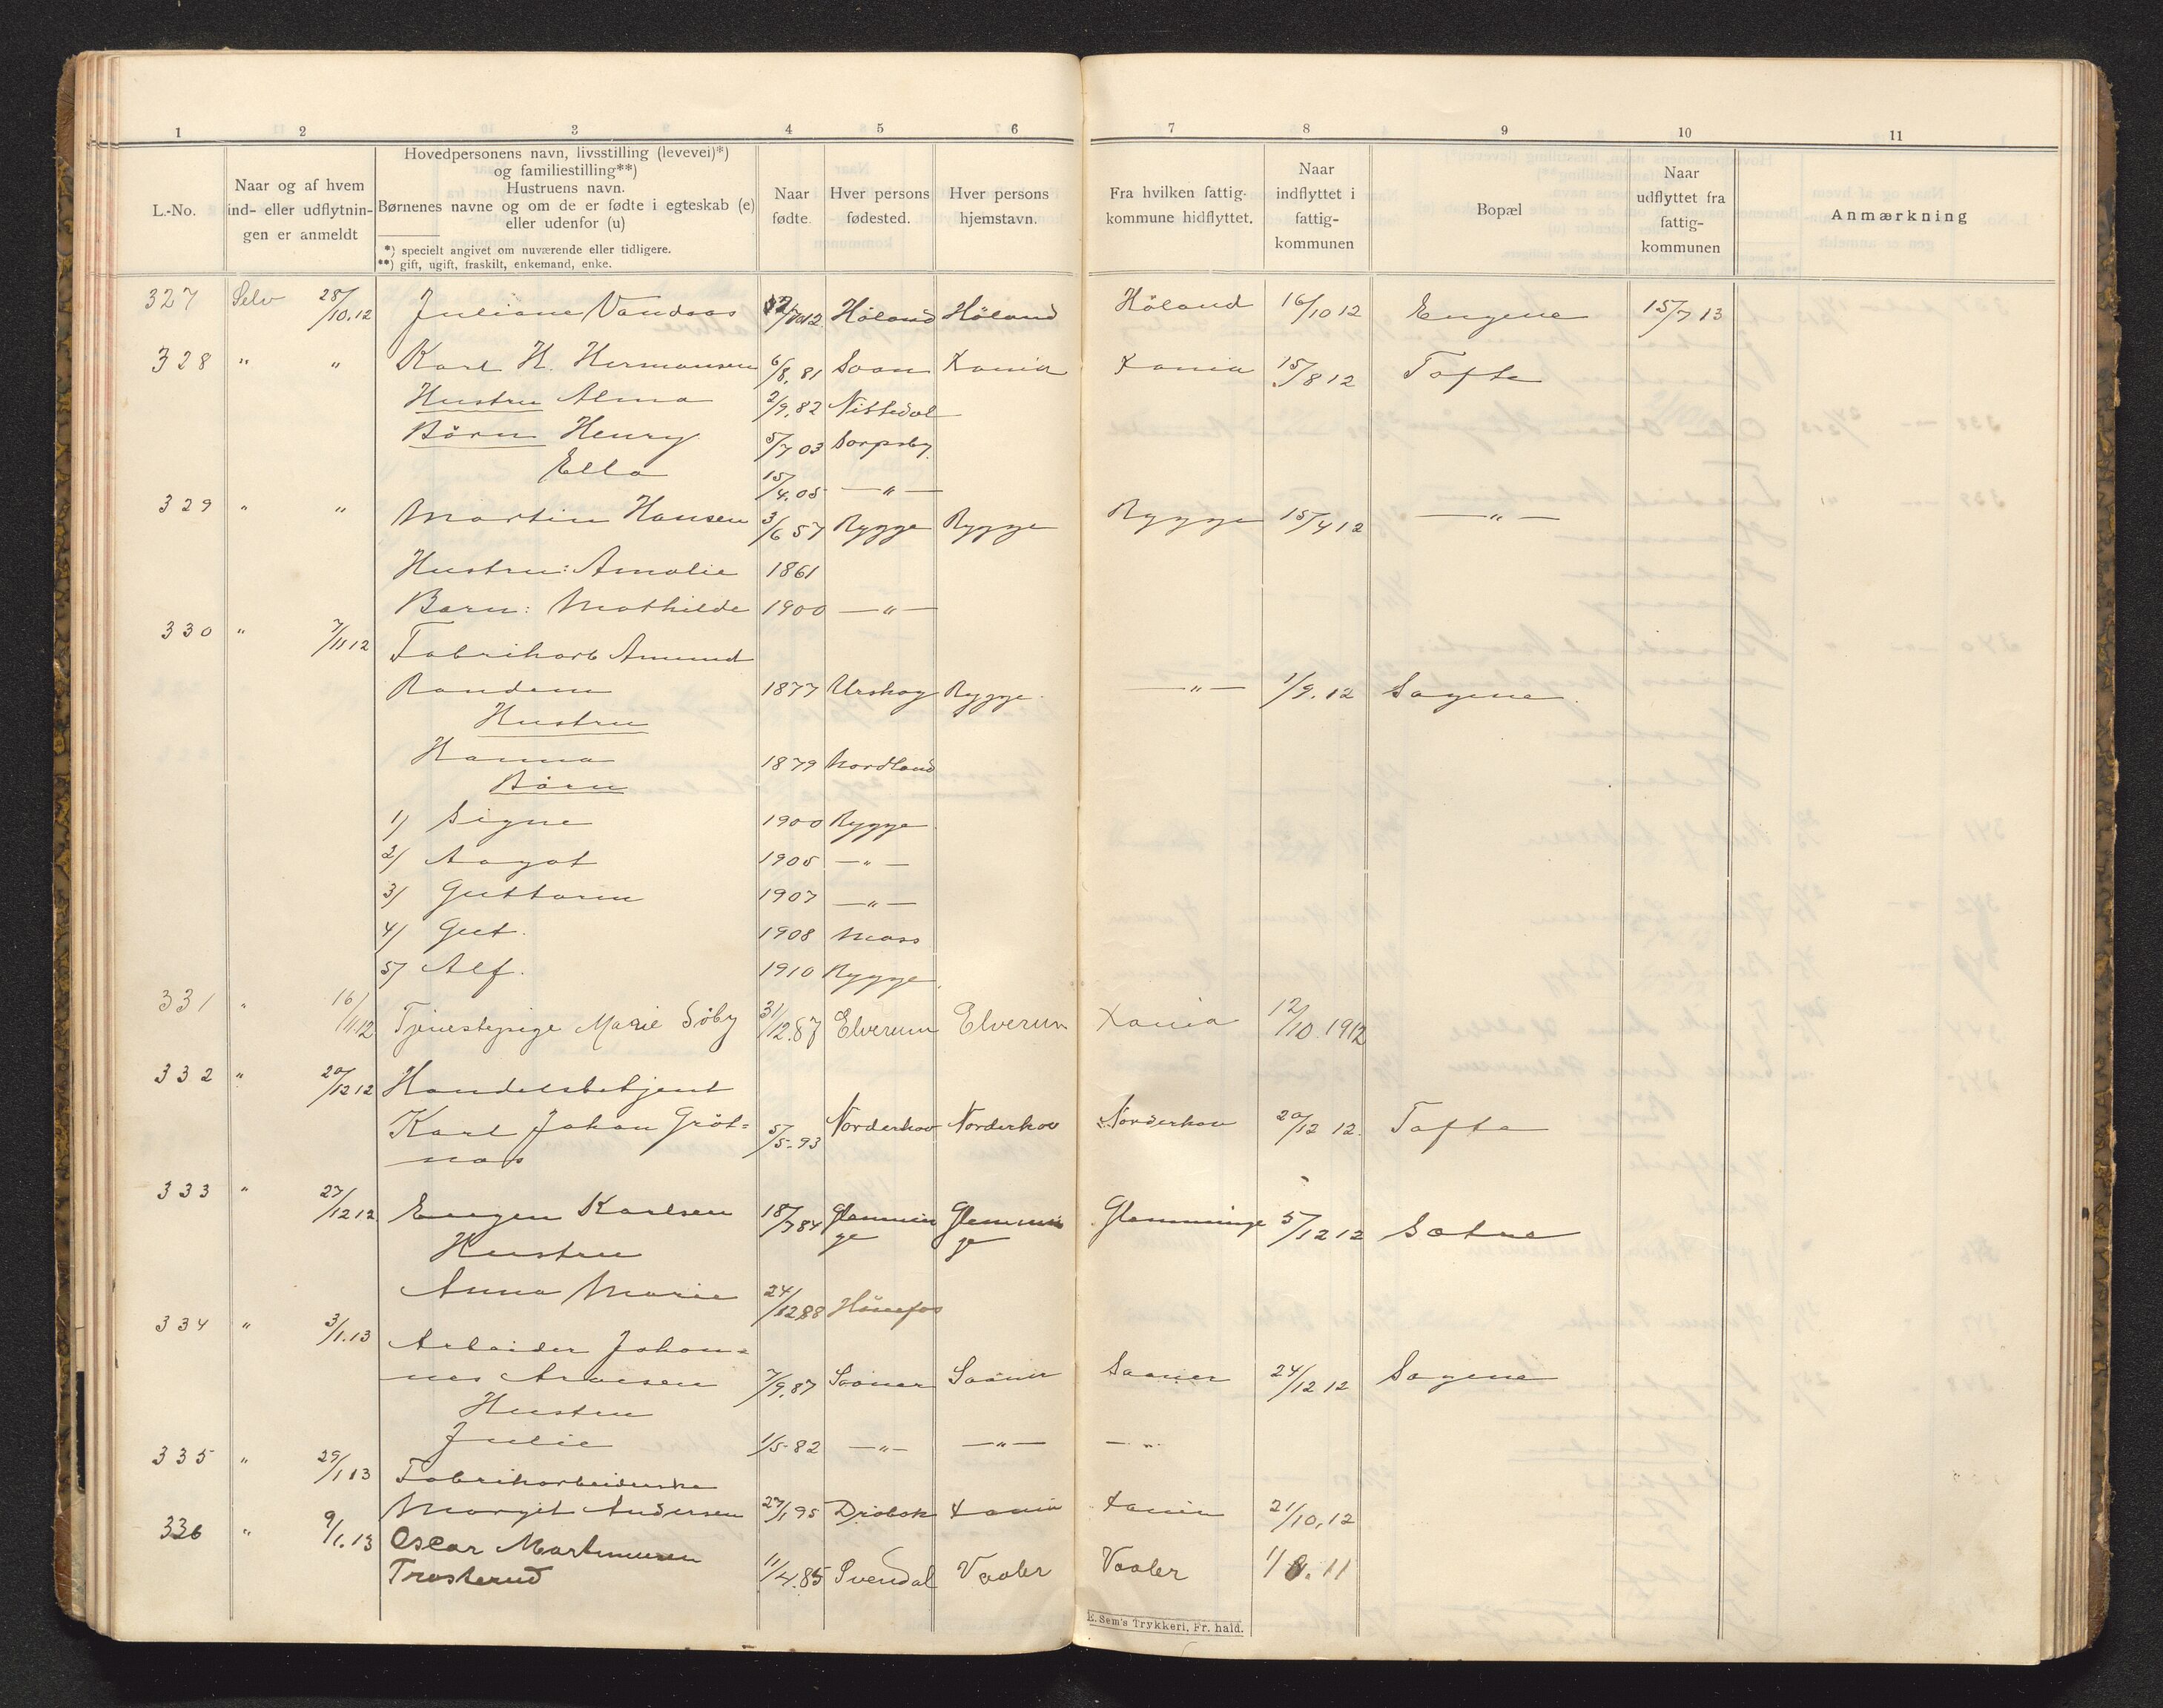 1 2 3 4 5 6 7 8 9 10 11
L.-No.
Naar og af hvem
ind- eller udflytnin-
gen er anmeldt
Hovedpersonens navn, livsstilling (levevei)*)
og familiestilling**)
Hustruens navn.
Børnenes navne og om de er fødte i egteskab (e)
eller udenfor (u)
*) specielt angivet om nuværende eller tidligere.
**) gift, ugift, fraskilt, enkemand, enke.
Naar
fødte.
Hver persons
fødested.
Hver persons
hjemstavn.
Fra hvilken fattig-
kommune hidflyttet.
Naar
indflyttet i
fattig-
kommunen
Bopæl
Naar
udflyttet fra
fattig-
kommunen
Anmærkning
327 Selv 28/10.12 Juliane Høland Høland Høland 16/10 12 Engene 15/7 13
328 " " Karl H. Hermansen 6/8.81 Soon Xania Xania 15/8 12 Tofte
Hustru Alma 2/9.82 Nittedal
Børn Henry 5/7 03 Sarpsbg.
Ella 15/4.05 — " —
329 " " Martin Hansen 3/6 57 Rygge Rygge Rygge 15/4 12 — " —
Hustru: Amalie 1861
Barn: Mathilde 1900 — " —
330 " 7/11 12 Fabrikarb Amund
Randem 1877 Urskog Rygge — " — 1/9.12 Sagene.
Hustru
Hanna 1879 Nordland
Børn
1) Signe 1900 Rygge
2) Aagot 1905 — " —
3) Guttorm 1907 — " —
4) Gut. 1908 Moss
5) Alf. 1910 Rygge
331 " 16/11 12 Tjenestepige Marie Söby 31/12.87 Elverum Elverum Xania 12/10 1912
332 " 20/12 12 Handelsbetjent
Karl Johan Gröt= 5/5-93 Norderhov Norderhov Norderhov 20/12 12. Tofte
nas
333 " 27/12 12 Eugen Karlsen 18/7 84 Glemmin Glemmin Glemminge 5/12 12 Sætre
Hustru ge ge
Anna Marie 24/12 88 Hönefos
334 " 3/1.13 Arbeider Johan=
nes Arnesen 7/9.87 Saaner Saaner Saaner 24/12 12 Sagene
Hustru
Julie 1/5-82 — " — — " — — " —
335 " 29/1 13 Fabrikarbeiderske
Margit Andersen 27/1 95 Dröbak Xania Xania 21/10.12
336 " 9/1.13 Oscar Martinusen
Trosterud 11/4.85 Svendal Vaaler Vaaler 1/8.11
E. Sem's Trykkeri, Fr. hald.